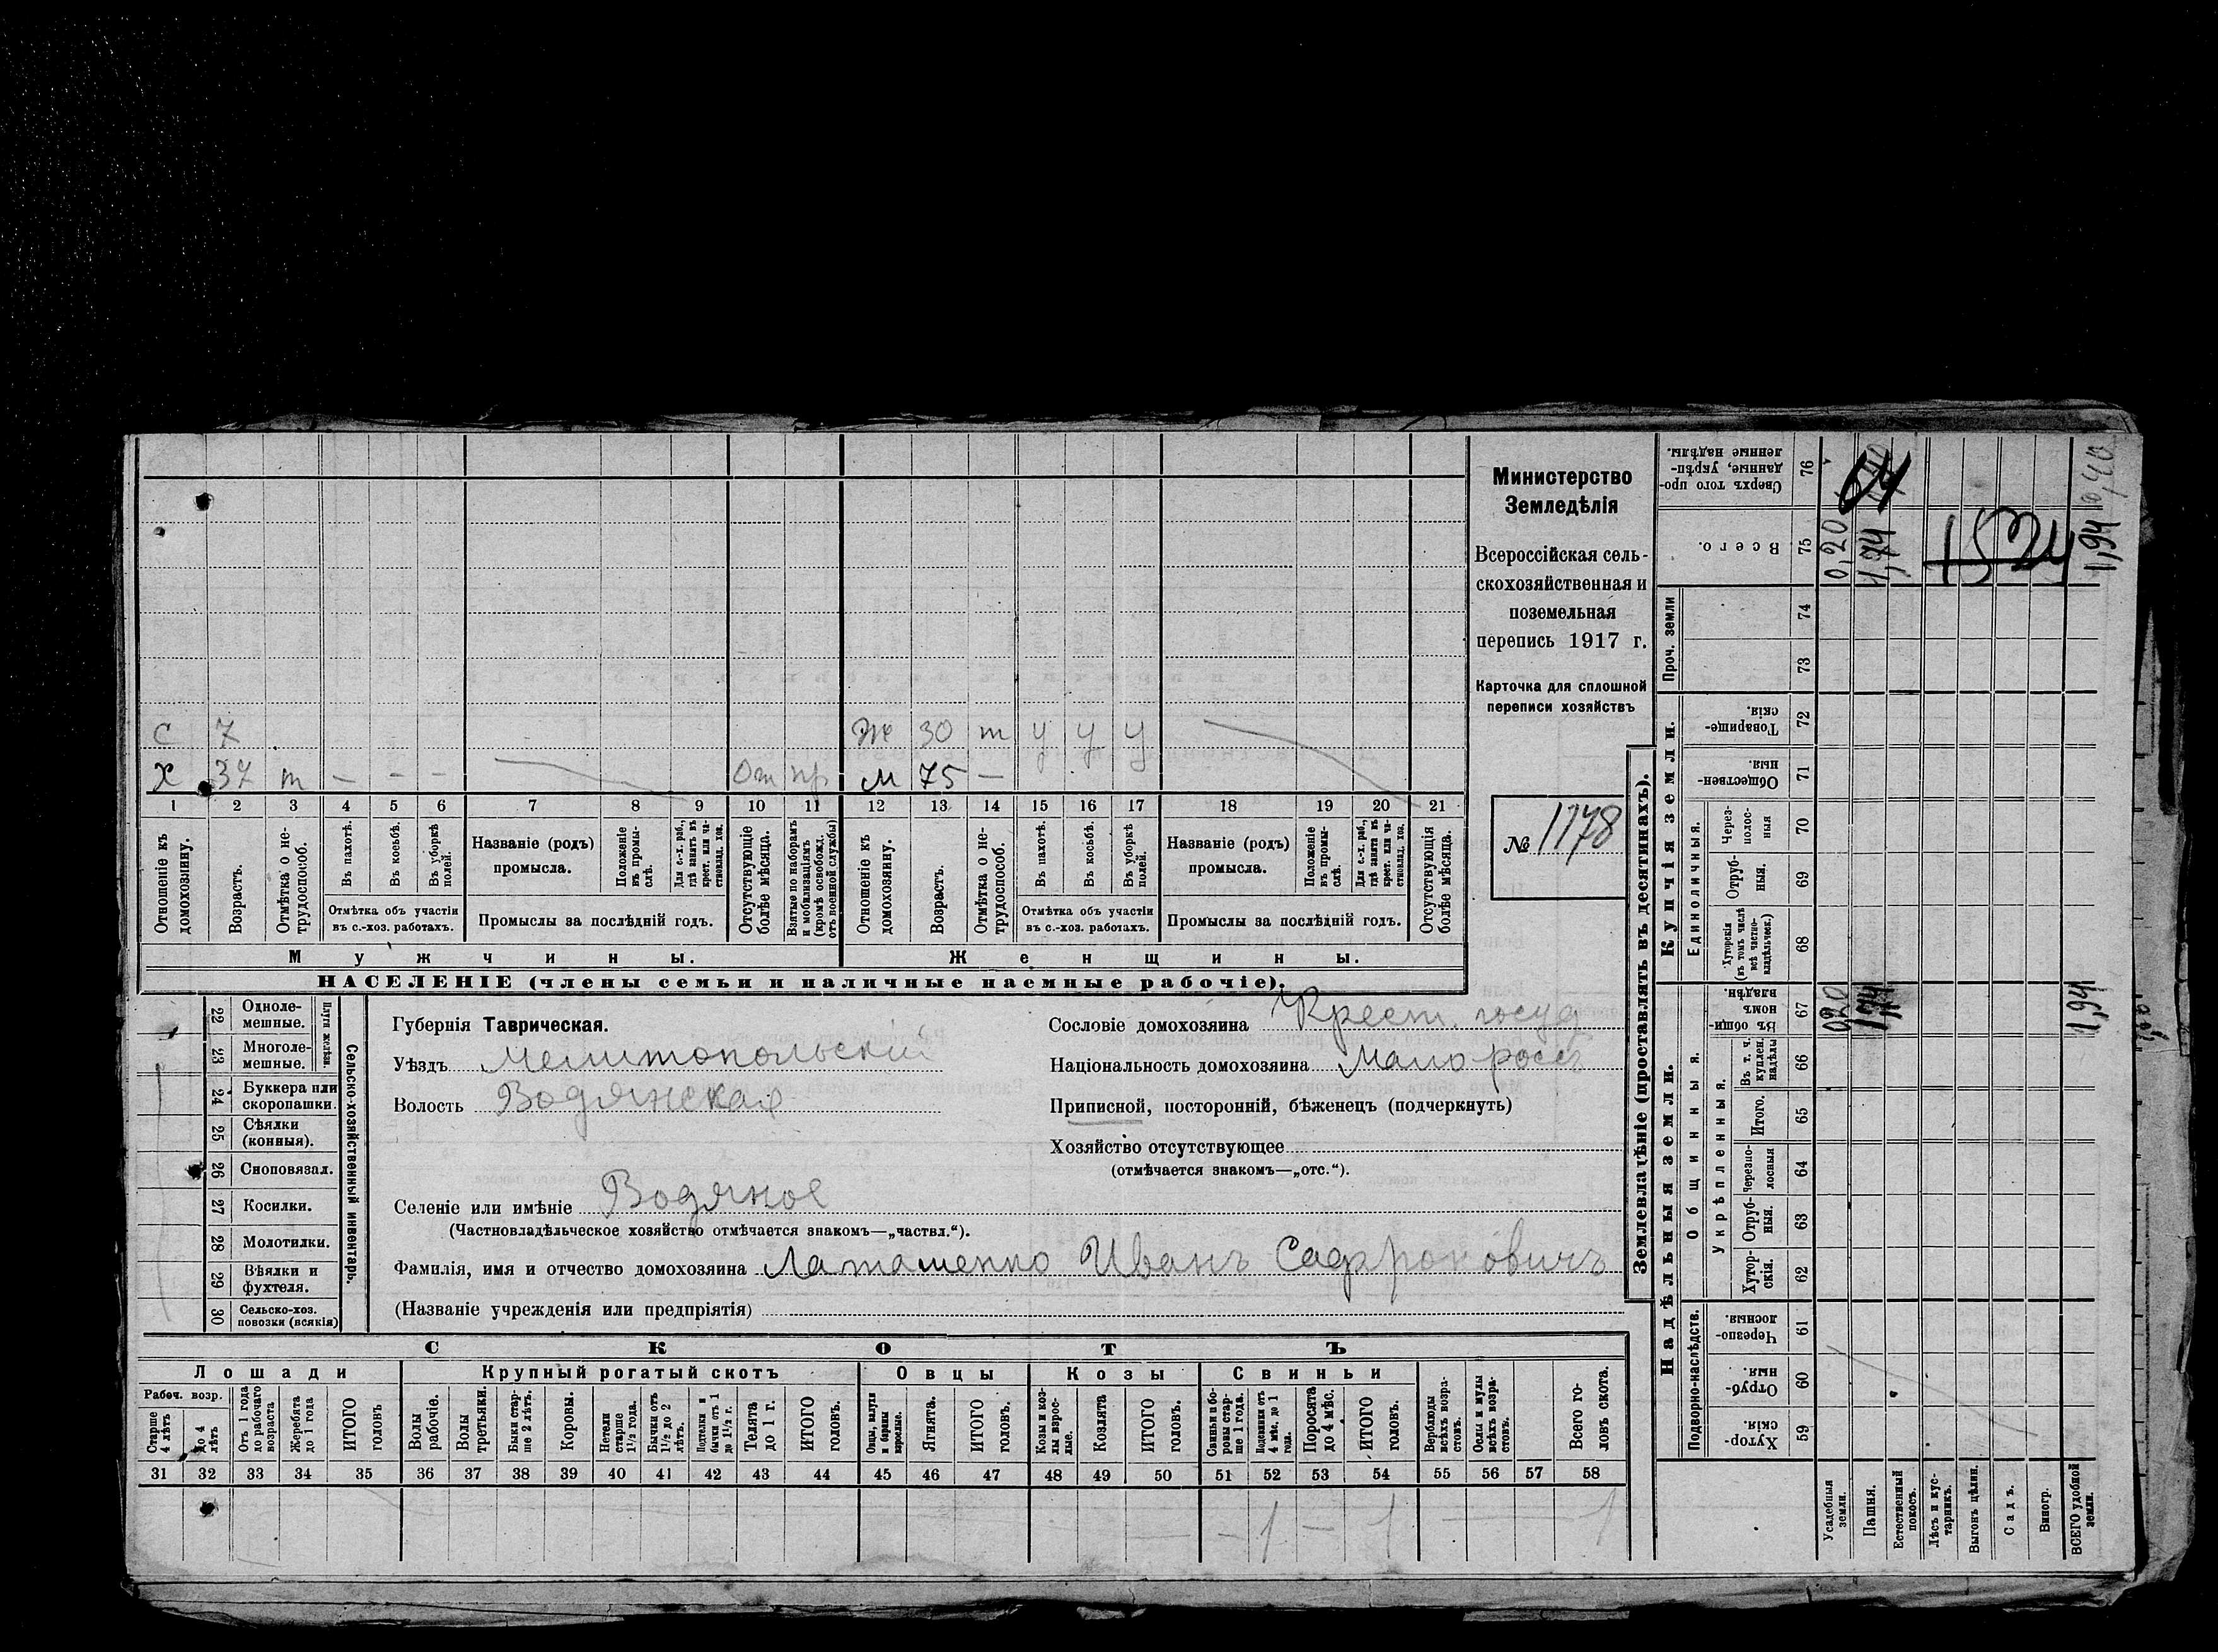 С 7 Ж 30 т у у у
Х 37 т – – – От пр М 75 –
1 2 3 4 5 6 7 8 9 10 11 12 13 14 15 16 17 18 19 20 21
Отношеніе къ домохозяину.
Возрастъ.
Отмѣтка о не-трудоспособ.
Въ пахотѣ.
Въ косьбѣ.
Въ уборкѣ полей.
Отмѣтка объ участіи
въ с.-хоз. работахъ.
Названіе (родъ)
промысла.
Положеніе въ промы-слѣ.
Для с.-х. раб., гдѣ занятъ въ крест. или ча-стновлад. хоз.
Промыслы за послѣдній годъ.
Отсутствующіе болѣе мѣсяца.
Взятые по наборамъ и мобилизаціямъ (кромѣ освобожд. отъ военной службы)
Отношеніе къ домохозяину.
Возрастъ.
Отмѣтка о не-трудоспособ.
Въ пахотѣ.
Въ косьбѣ.
Въ уборкѣ полей.
Отмѣтка объ участіи
въ с.-хоз. работахъ.
Названіе (родъ)
промысла.
Положеніе въ промы-слѣ.
Для с.-х. раб., гдѣ занята въ крест. или ча-стновлад. хоз.
Промыслы за послѣдній годъ.
Отсутствующія болѣе мѣсяца.
Мужчины.
Женщины.
НАСЕЛЕНІЕ (члены семьи и наличные наемные рабочіе).
Министерство
Земледѣлія
Всероссійская сель-
скохозяйственная и
поземельная
перепись 1917 г.
Карточка для сплошной
переписи хозяйствъ
№ 1178
Сельско-хозяйственный инвентарь.
22 Одноле-мешные.
23 Многоле-мешные.
24 Буккера или скоропашки.
25 Сѣялки (конныя).
26 Сноповязал.
27 Косилки.
28 Молотилки.
29 Вѣялки и фухтеля.
30 Сельско-хоз. повозки (всякія)
Губернія Таврическая.
Уѣздъ Мелитопольскій
Волость Водянская
Селеніе или имѣніе Водяное
(Частновладѣльческое хозяйство отмѣчается знакомъ—„частвл.“).
Фамилія, имя и отчество домохозяина Латашенко Иванъ Сафроновичъ
(Названіе учрежденія или предпріятія)
Сословіе домохозяина Крест. госуд
Національность домохозяина Малоросъ
Приписной, посторонній, бѣженецъ (подчеркнуть)
Хозяйство отсутствующее
(отмѣчается знакомъ—„отс.“).
СКОТЪ
Лошади
Крупный рогатый скотъ
Овцы
Козы
Свиньи
Рабоч. возр.
Старше 4 лѣтъ
до 4 лѣтъ
Отъ 1 года до рабочаго возраста
Жеребята до 1 года
ИТОГО головъ
Волы рабочіе.
Волы третьяки.
Быки стар-ше 2 лѣтъ.
Коровы.
Нетели старше 1½ года.
Бычки отъ 1½ до 2 лѣтъ.
Подтелки и бычки отъ 1 до 1½ г.
Телята до 1 г.
ИТОГО головъ.
Овцы, валухи и бараны взрослые.
Ягнята.
ИТОГО головъ.
Козы и коз-лы взрос-лые.
Козлята
ИТОГО головъ.
Свиньи и бо-ровы стар-ше 1 года.
Подсвинки отъ 4 мѣс. до 1 года.
Поросята до 4 мѣс.
ИТОГО головъ.
Верблюды всѣхъ возра-стовъ.
Ослы и мулы всѣхъ возра-стовъ.
Всего го-ловъ скота.
31 32 33 34 35 36 37 38 39 40 41 42 43 44 45 46 47 48 49 50 51 52 53 54 55 56 57 58
– 1 – 1 1
Землевладѣніе (проставлять въ десятинахъ).
Надѣльныя земли.
Купчія земли.
Проч. земли
Подворно-наслѣдств.
Общинныя.
Укрѣпленныя.
Единоличныя.
Хутор-скія 59
Отруб-ныя. 60
Черезпо-лосныя 61
Хутор-скія. 62
Отруб-ныя. 63
Черезпо-лосныя 64
Итого. 65
Въ т. ч. куплен. надѣлы 66
Въ общин-номъ владѣн. 67
Хуторскія (въ томъ числѣ всѣ частно-владѣльческ.) 68
Отруб-ныя. 69
Через-полос-ныя 70
Обществен-ныя. 71
Товарище-скія. 72
73
74
Всего. 75
Сверхъ того про-данные, укрѣп-ленные надѣлы. 76
Усадебныя земли. 0,20 0,20
Пашня. 1,74 1,74
Естественный покосъ.
Лѣсъ и кус-тарникъ.
Выгонъ цѣлин.
Садъ.
Виногр.
ВСЕГО удобной земли. 1,94 1,94